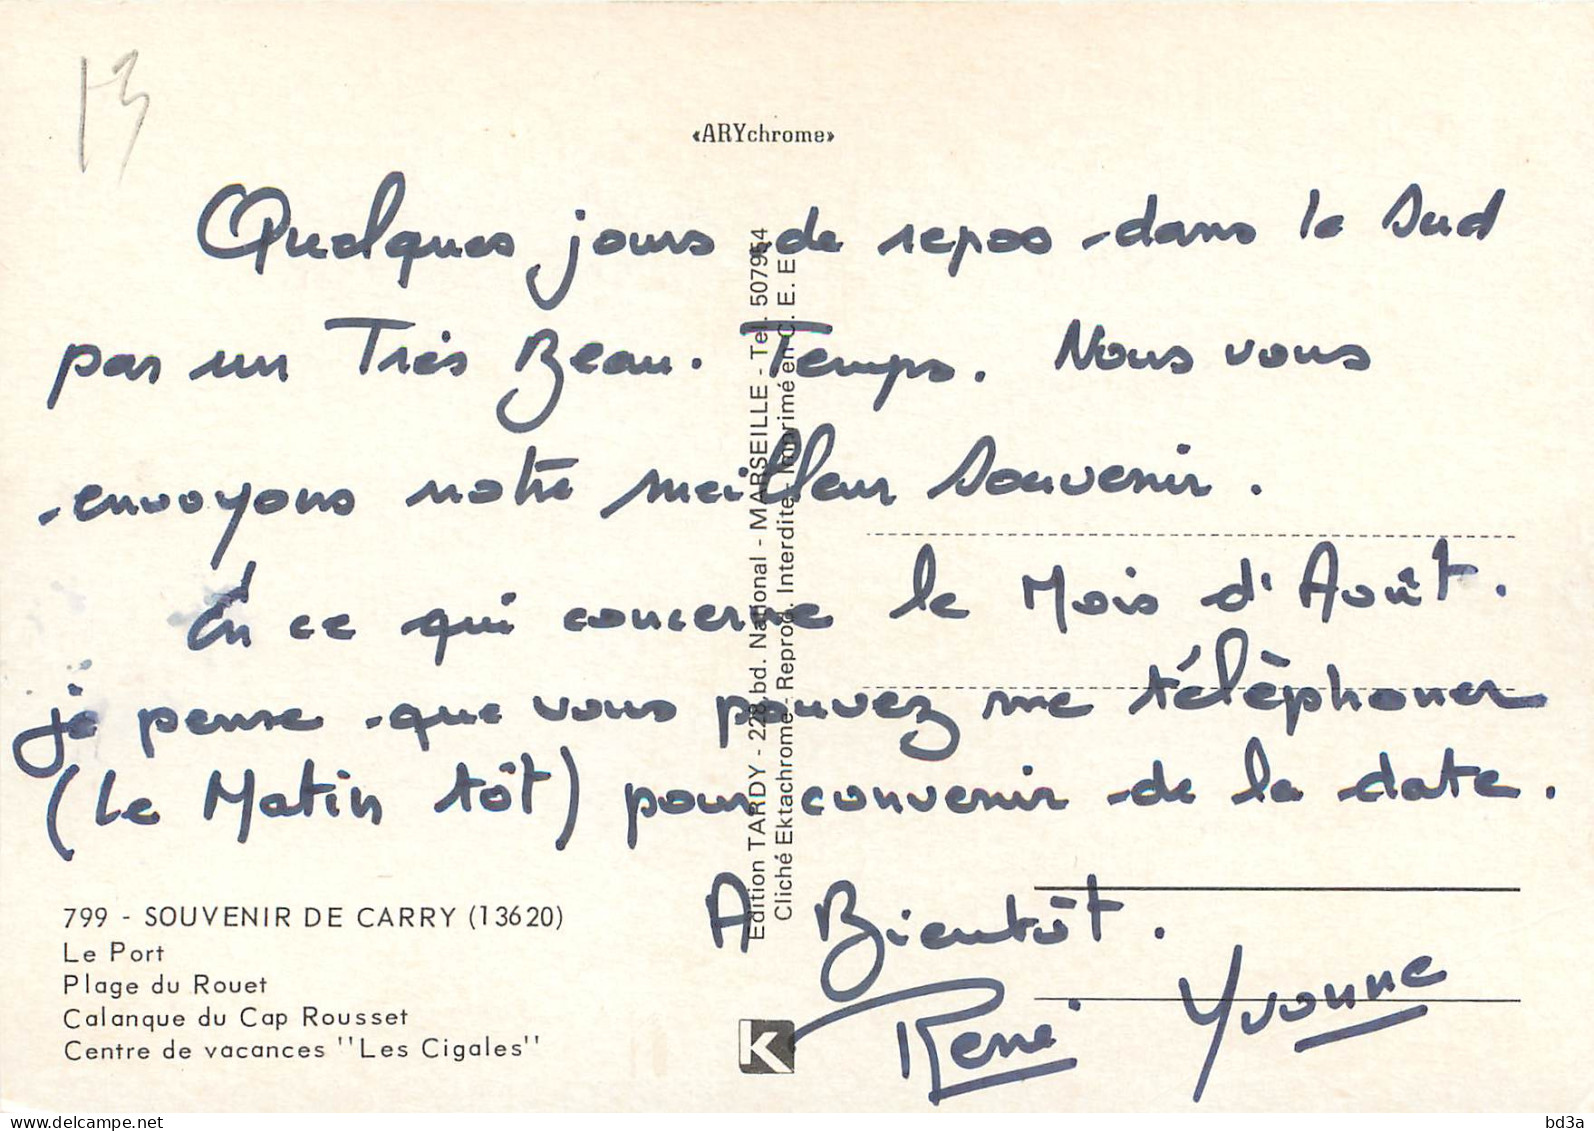 13
«ARYchrome»
Quelques jours de repos dans le Sud
par un Très Beau. Temps. Nous vous
envoyons notre meilleur Souvenir.
En ce qui concerne le Mois d'Août.
je pense que vous pouvez me télèphoner
(Le Matin tôt) pour convenir de la date.
A Bientôt.
René Yvonne
Edition TARDY - 228, bd. National - MARSEILLE - Tel. 507954
Cliché Ektachrome - Reprod. Interdite - Imprimé en C. E. E
799 - SOUVENIR DE CARRY (13620)
Le Port
Plage du Rouet
Calanque du Cap Rousset
Centre de vacances ''Les Cigales''
K
delcampe.net
bd3a